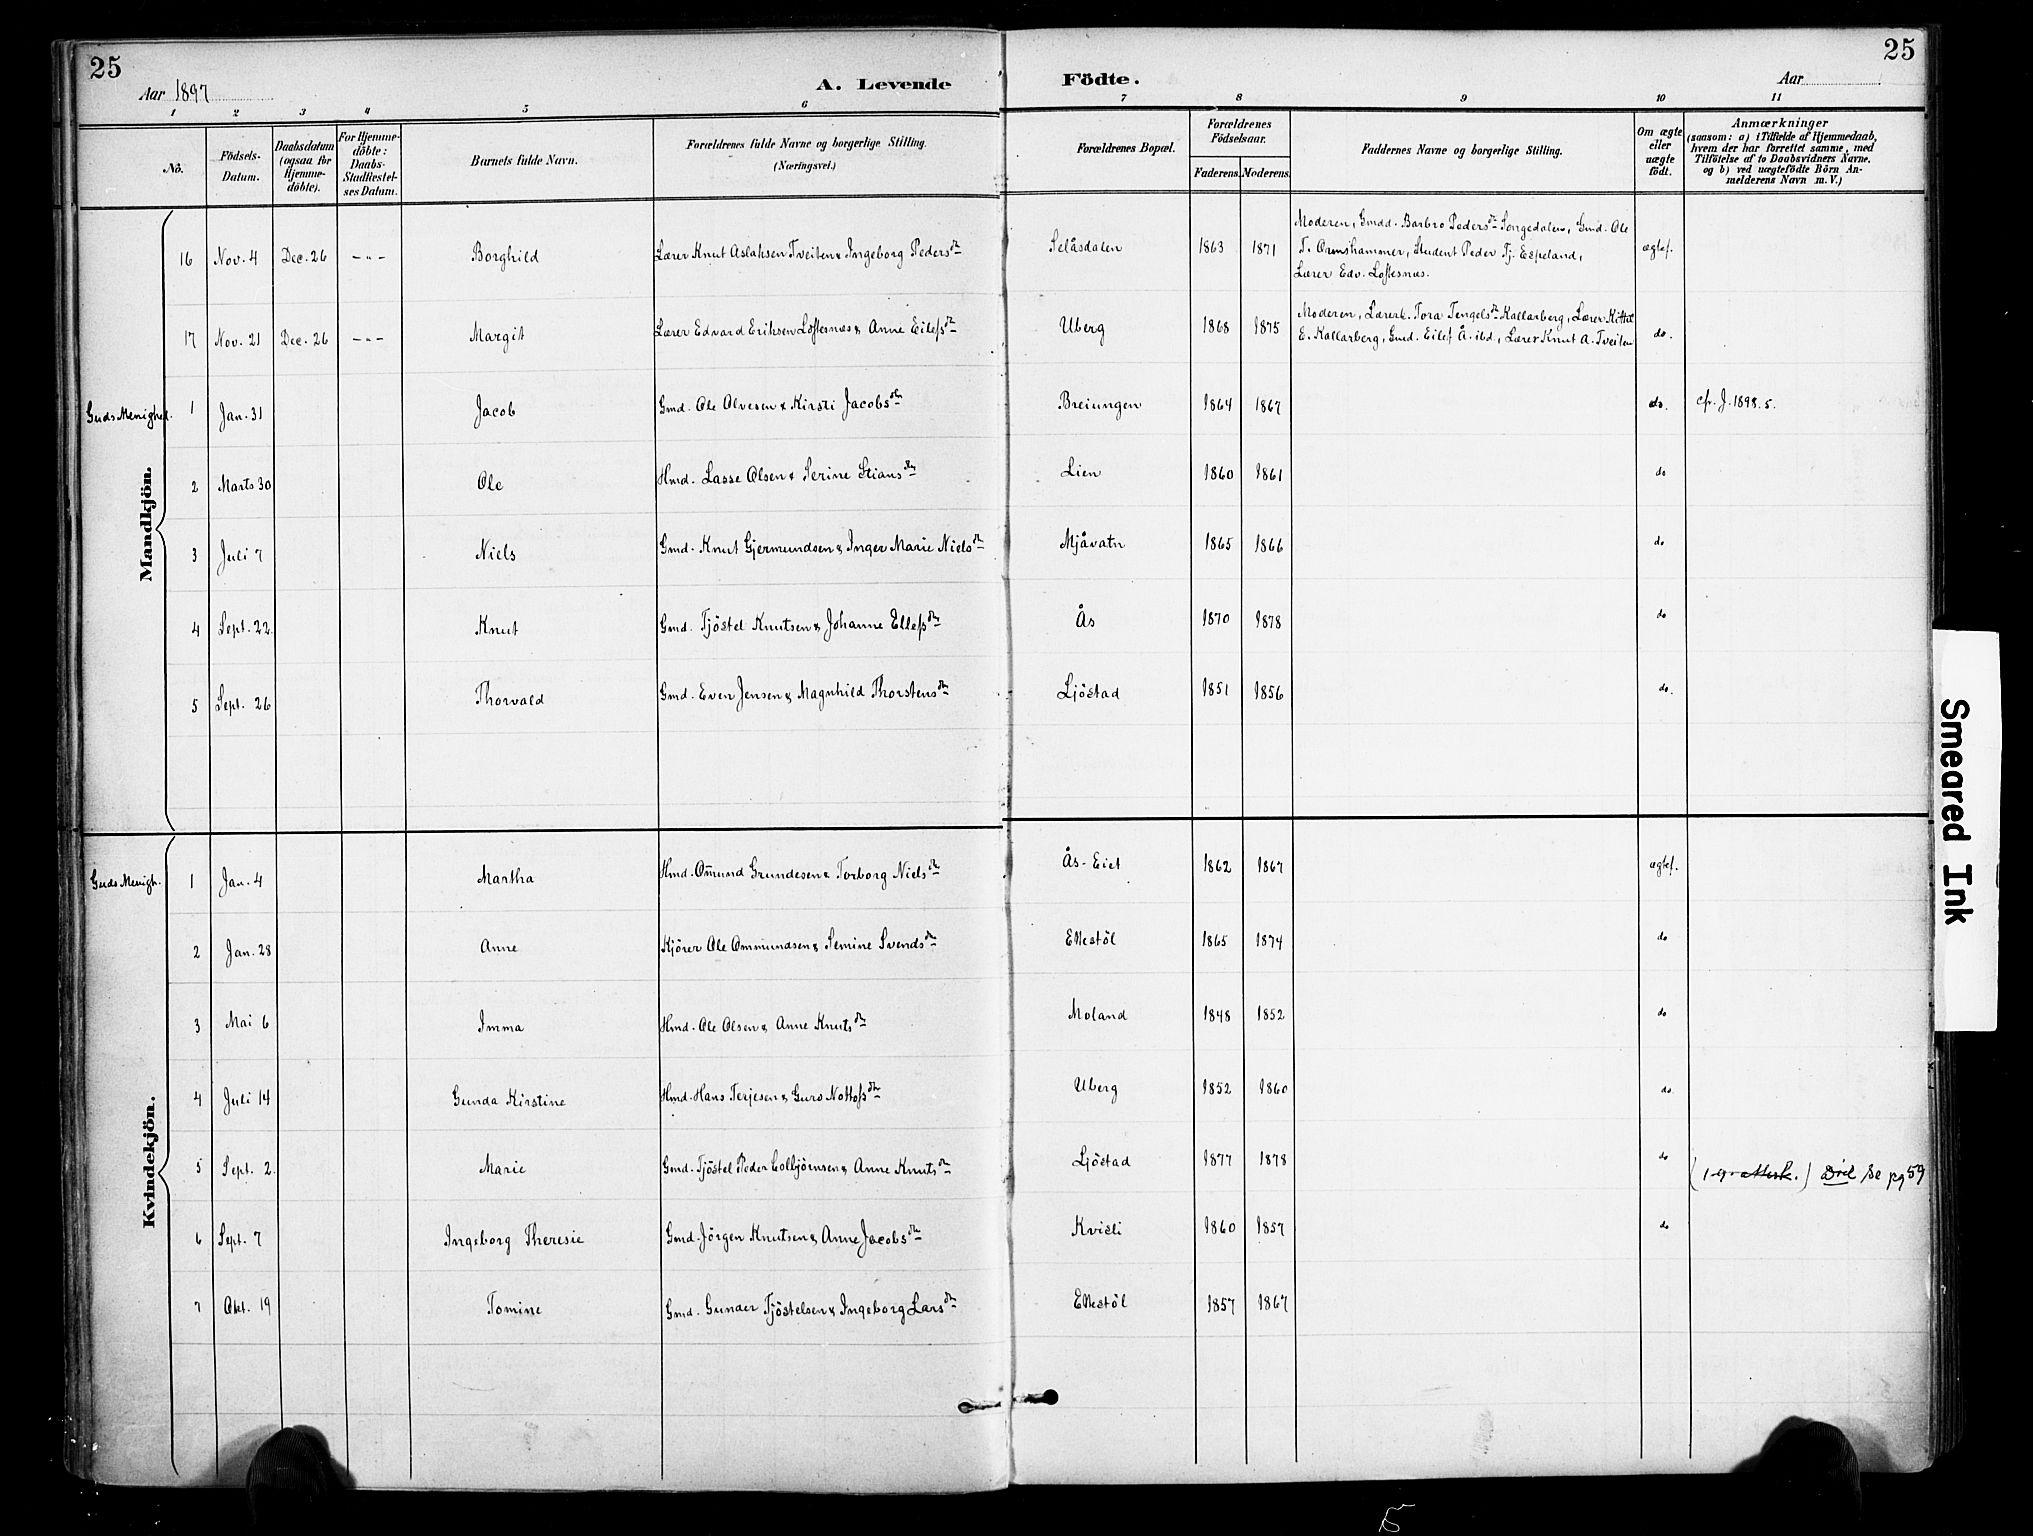 25
Aar 1897
A. Levende
Födte.
Aar
25
1 2 3 4 5 6 7 8 9 10 11
No.
Födsels-Datum.
Daabsdatum (ogsaa for Hjemme-döbte).
For Hjemme-döbte: Daabs-Stadfæstel-ses Datum.
Barnets fulde Navn.
Forældrenes fulde Navne og borgerlige Stilling.
(Næringsvei.)
Forældrenes Bopæl.
Forældrenes Födselsaar.
Faderens. Moderens.
Faddernes Navne og borgerlige Stilling.
Om ægte eller uægte födt.
Anmærkninger
(saasom: a) i Tilfælde af Hjemmedaab, hvem der har forrettet samme, med Tilföielse af to Daabsvidners Navne, og b) ved uægtefödte Börn An-melderens Navn m. V.)
Mandkjön.
16 Nov. 4 Dec. 26 -"- Borghild Lærer Knut Aslaksen Tveiten & Ingeborg Pedersdtr Selåsdalen 1863 1871 Moderen, Gmdd. Barbro Pedersdtr Songedalen, Gmd. Ole
T. Ormshammer, Student Peder Tj. Espeland,
Lærer Edv. Loftesnæs. ægtef.
17 Nov. 21 Dec. 26 -"- Margit Lærer Edvard Eriksen Loftesnæs & Anne Eilefsdtr Uberg 1868 1875 Moderen, Lærerk. Tora Tengelsdtr Kallarberg, Lærer Kittel
E. Kallarberg, Gmd. Eilef Å. ibd., Lærer Knut A. Tveiten do.
Guds Menighed. 1 Jan. 31 Jacob Gmd. Ole Alvesen & Kirsti Jacobsdtr Breiungen 1864 1867 do. cfr. J. 1898. 5.
2 Marts 30 Ole Hmd. Lasse Olsen & Serine Stiansdtr Lien 1860 1861 do
3 Juli 7 Niels Gmd. Knut Gjermundsen & Inger Marie Nielsdtr Mjåvatn 1865 1866 do
4 Sept. 22. Knut Gmd. Tjöstel Knutsen & Johanne Ellefsdtr Ås 1870 1878 do
5 Sept. 26 Thorvald Gmd. Even Jensen & Magnhild Thorstensdtr Ljöstad 1851 1856 do.
Kvindekjön.
Guds Menigh. 1 Jan. 4 Martha Hmd. Omund Grundesen & Torborg Nielsdtr Ås-Eiet 1862 1867 ægtef.
2 Jan. 28 Anne Kjörer Ole Ommundsen & Semine Svendsdtr Ellestöl 1865 1874 do
3 Mai 6 Imma Hmd. Ole Olsen & Anne Knutsdtr Moland 1848 1852 do
4 Juli 14 Gunda Kirstine Hmd. Hans Terjesen & Guro Nottofsdtr Uberg 1852 1860 do
5 Sept. 2. Marie Gmd. Tjöstel Peder Colbjörnsen & Anne Knutsdtr Ljöstad 1877 1878 do Död se pg 59
6 Sept. 7 Ingeborg Theresie Gmd. Jörgen Knutsen & Anne Jacobsdtr Kvisli 1860 1857 do
7 Okt. 19 Tomine Gmd. Gunder Tjöstelsen & Ingeborg Larsdtr Ellestöl 1857 1867
Smeared Ink
5